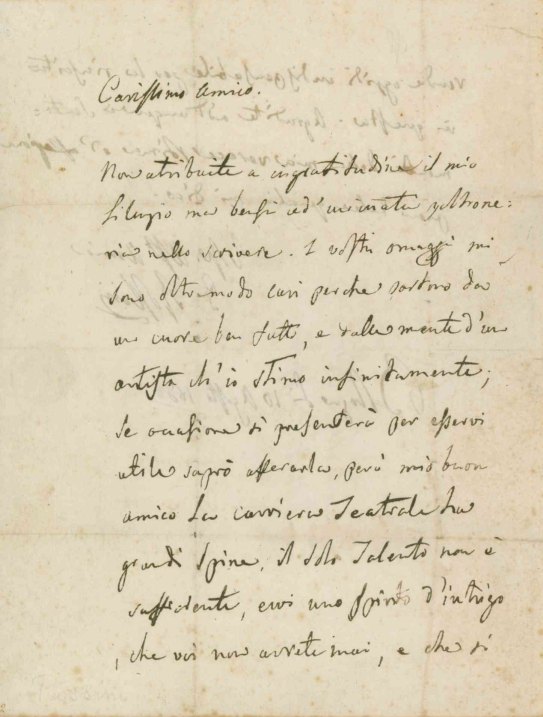 Carissimo Amico.
Non atribuite a ingratitudine il mio
silenzio ma bensi ad'innata poltrone:
ria nello scrivere. I vostri omaggi mi
sono oltremodo cari perche partono da
un cuore ben fatto, e dalla mente d'un
artista ch'io stimo infinitamente;
se ocasione si presenterà per esservi
utile saprò afferarla, però mio buon
amico La carriera Teatrale ha
grandi spine, il solo Talento non è
sufficiente, evvi uno spirito d'intrigo
, che voi non avrete mai, e che si